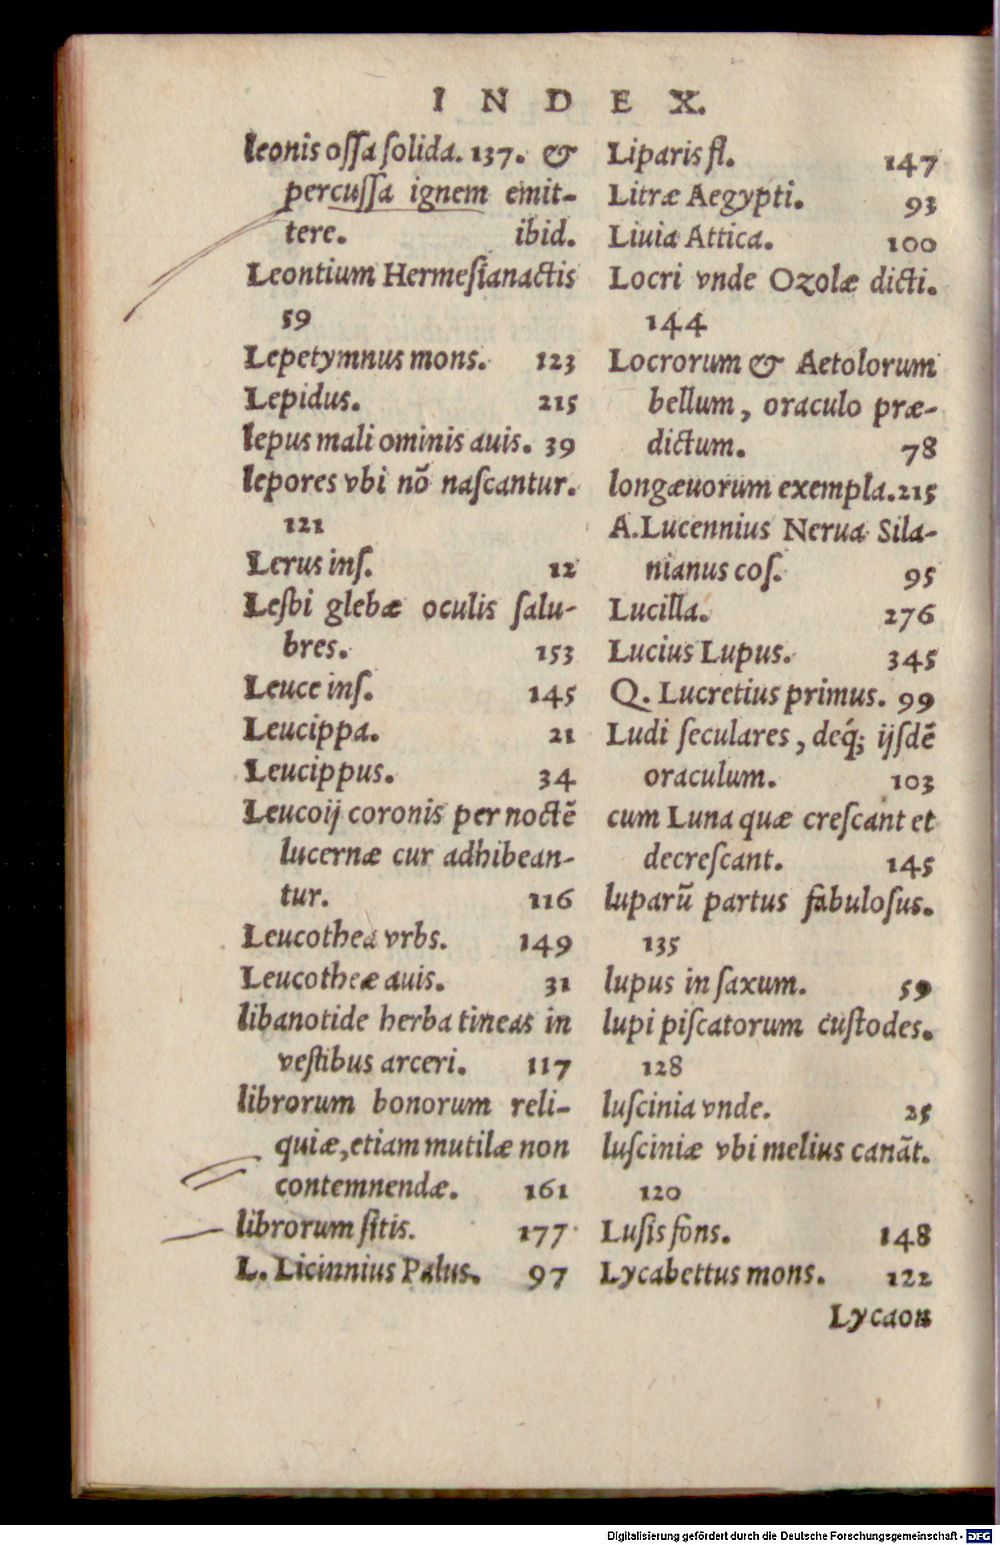 INDEX.
leonis ossa solida. 137. &
percussa ignem emit-
tere. ibid.
Leontium Hermesianactis
59
Lepetymnus mons. 123
Lepidus. 215
lepus mali ominis auis. 39
lepores vbi nō nascantur.
121
Lerus ins. 12
Lesbi glebæ oculis salu-
bres. 153
Leuce ins. 145
Leucippa. 21
Leucippus. 34
Leucoij coronis per noctē
lucernæ cur adhibean-
tur. 116
Leucothea vrbs. 149
Leucotheæ auis. 31
libanotide herba tineas in
vestibus arceri. 117
librorum bonorum reli-
quiæ, etiam mutilæ non
contemnendæ. 161
librorum sitis. 177
L. Licinnius Palus. 97
Liparis fl. 147
Litræ Aegypti. 93
Liuia Attica. 100
Locri vnde Ozolæ dicti.
144
Locrorum & Aetolorum
bellum, oraculo præ-
dictum. 78
longæuorum exempla. 215
A. Lucennius Nerua Sila-
nianus cos. 95
Lucilla. 276
Lucius Lupus. 345
Q. Lucretius primus. 99
Ludi seculares, deq́; ijsdē
oraculum. 103
cum Luna quæ crescant et
decrescant. 145
luparū partus fabulosus.
135
lupus in saxum. 59
lupi piscatorum custodes.
128
luscinia vnde. 25
lusciniæ vbi melius canāt.
120
Lusis fons. 148
Lycabettus mons. 122
Lycaon
Digitalisierung gefördert durch die Deutsche Forschungsgemeinschaft - DFG